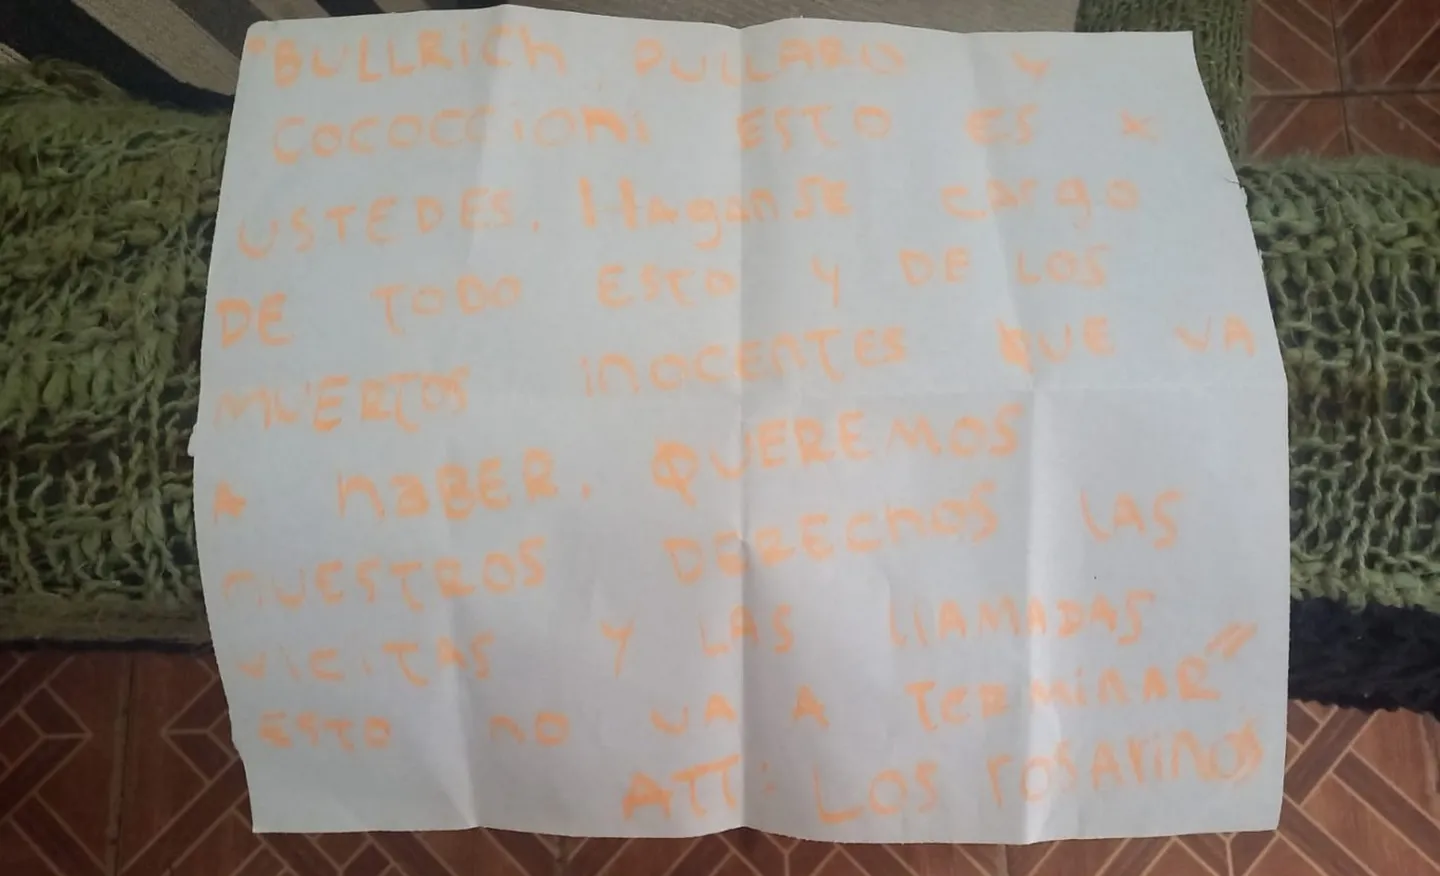 "BULLRICH PULLARO Y
COCOCCIONI ESTO ES X
USTEDES. HaganSE cargo
DE TODO ESTO Y DE LOS
MUERTOS inOCENTES QUE VA
A HaBER. QUEREMOS
nUESTROS DERECHOS LAS
VICITAS Y LAS llAMADAS
ESTO nO VA A TERMinAR"
ATT: LOS rOSArinOS